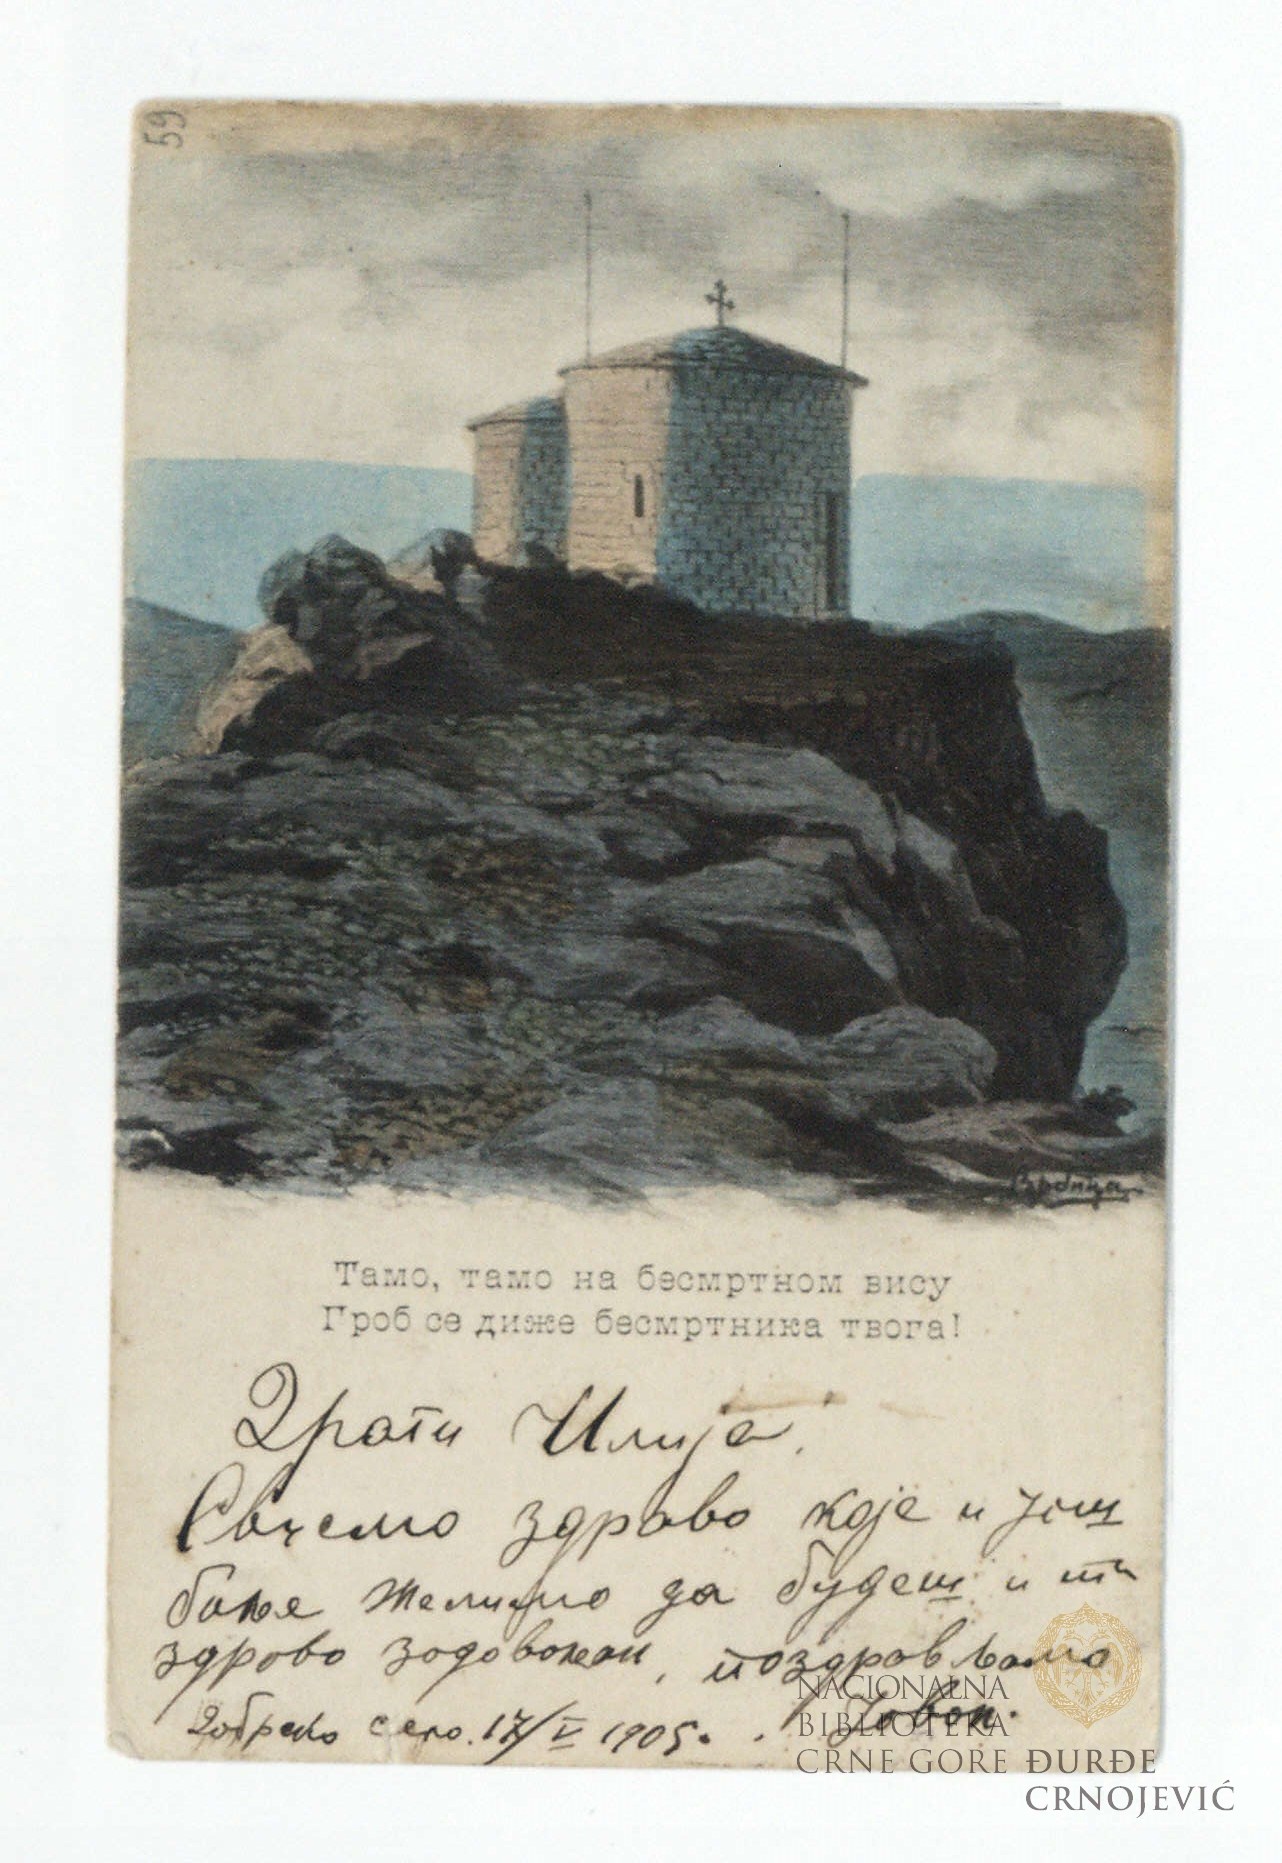 59
Тамо, тамо на бесмртном вису
Гроб се диже бесмртника твога!
Драги Илија,
Сви смо здраво које и још
боље желимо да будеш и ти
здраво задовољан, поздравља мо
Добрско село. 17/V 1905. Јован.
NACIONALNA
BIBLIOTEKA
CRNE GORE ĐURĐE
CRNOJEVIĆ